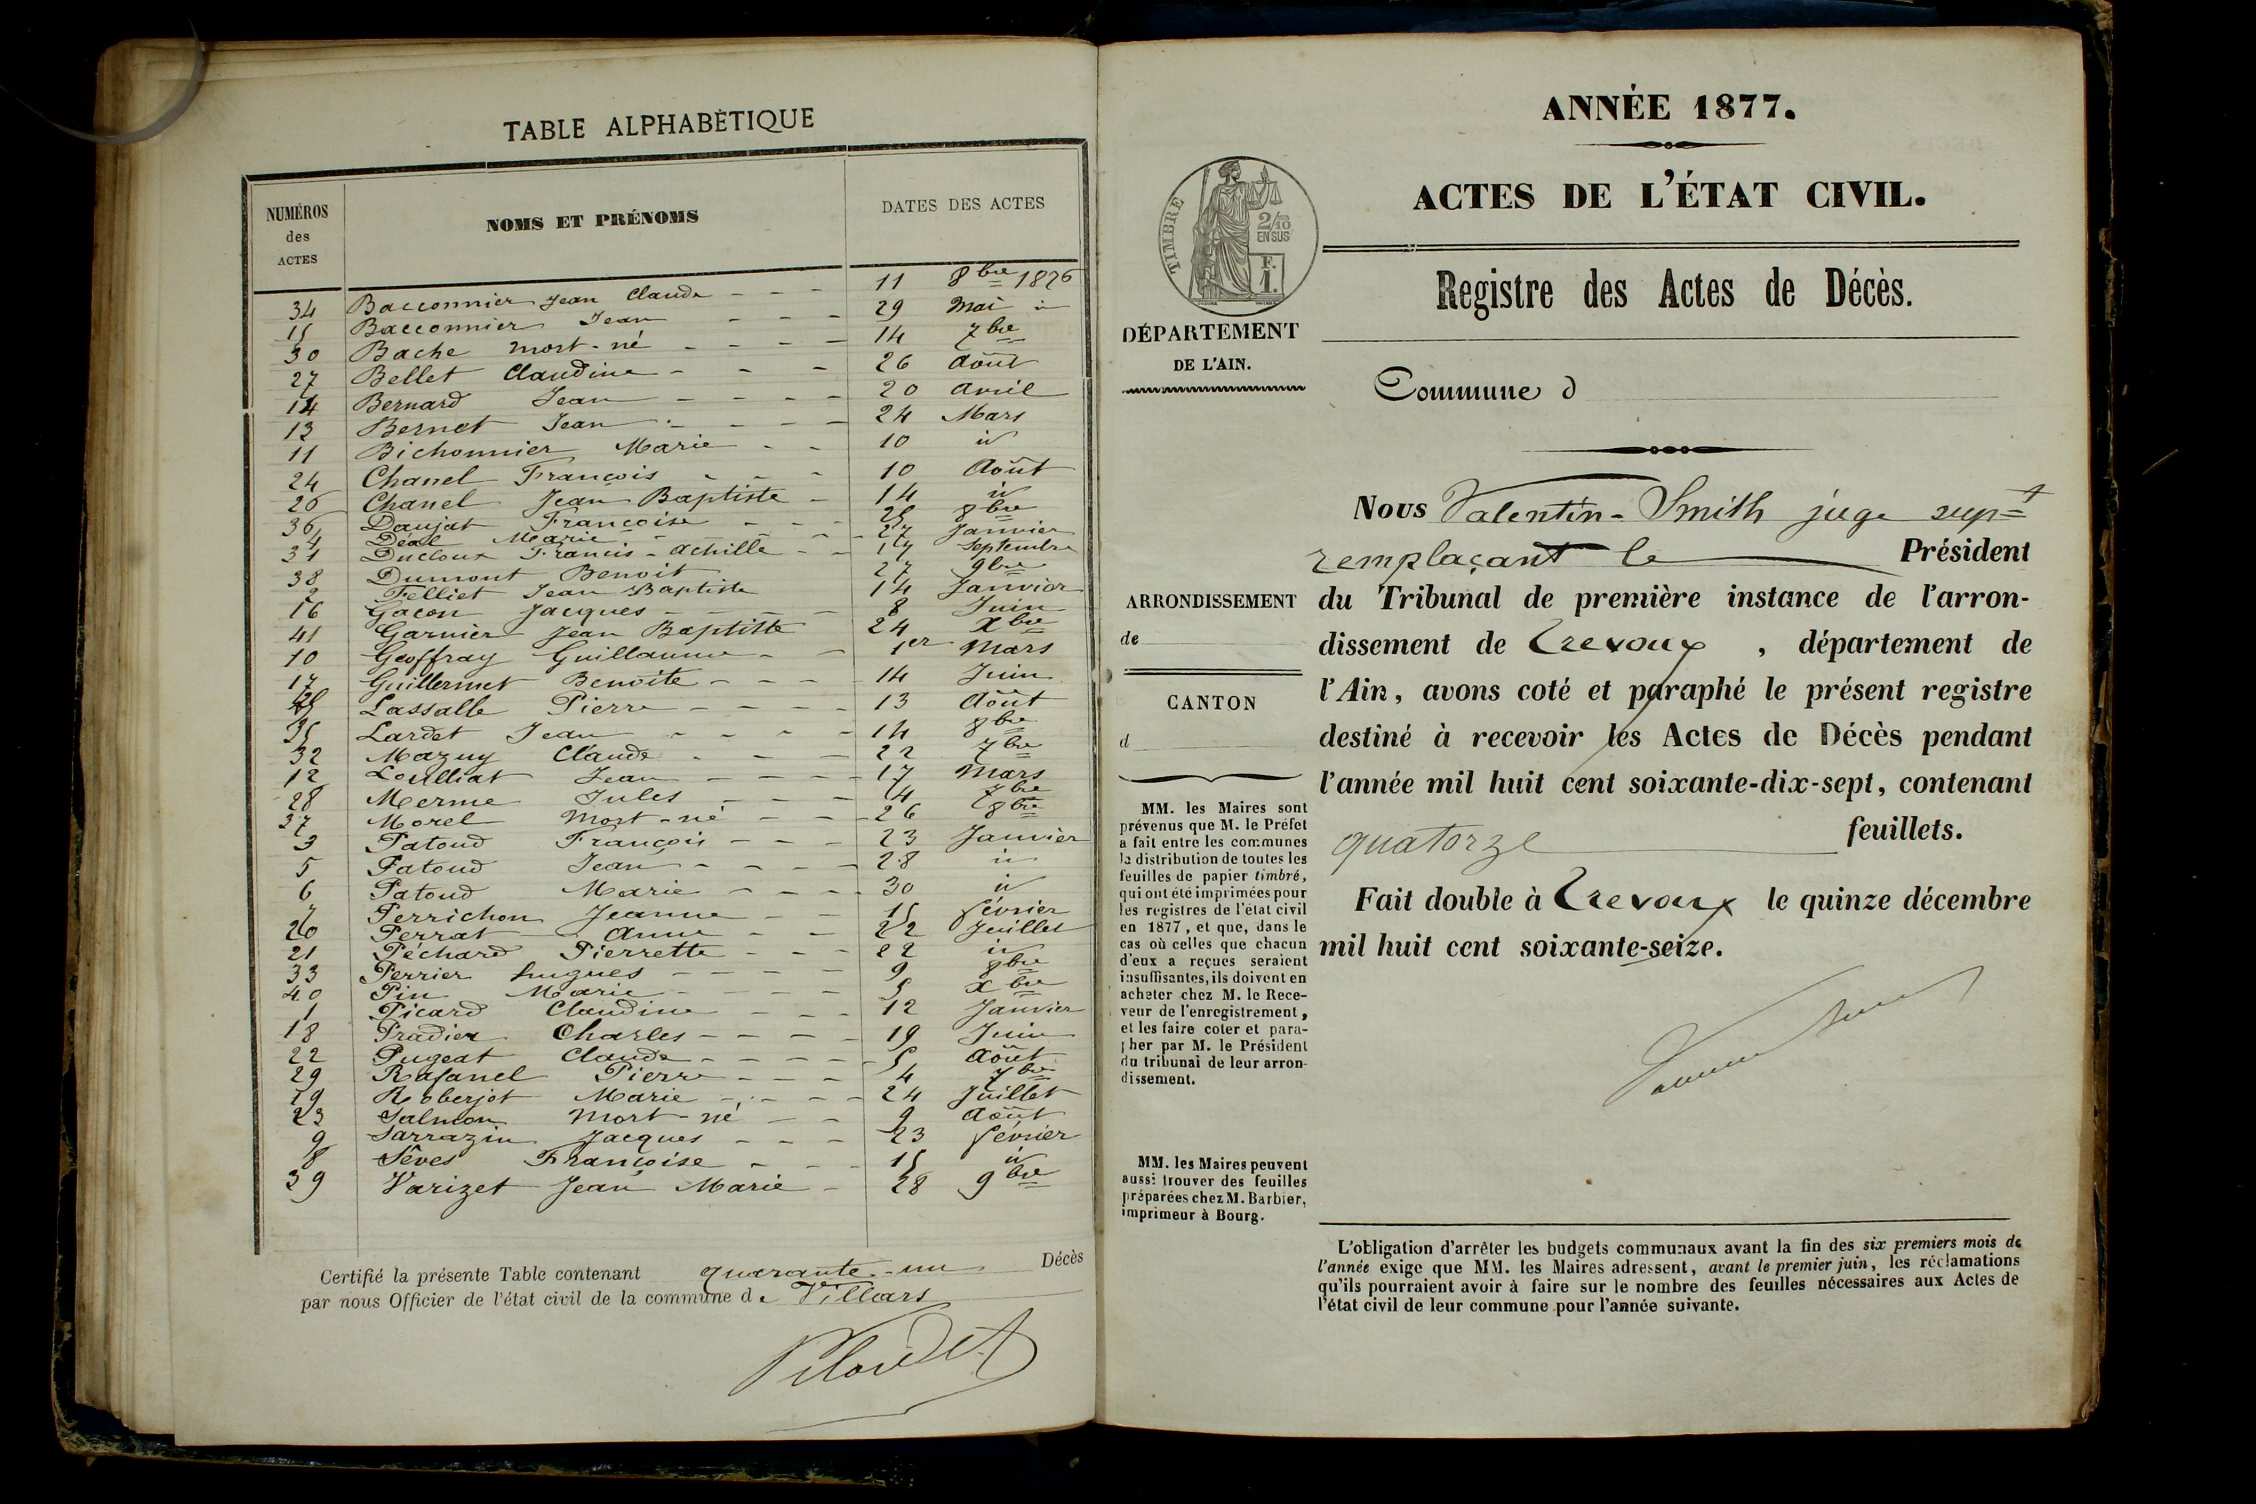 TABLE ALPHABÉTIQUE
NUMÉROS des ACTES NOMS ET PRÉNOMS DATES DES ACTES
34 Bacconnier Jean Claude - - - 11 8bre 1876
15 Bacconnier Jean - - - 29 Mai id
30 Bache mort-né - - - - 14 7bre
27 Bellet Claudine - - - 26 Août
14 Bernard Jean - - - - 20 Avril
13 Bernet Jean - - - - 24 Mars
11 Bichonnier Marie - - 10 id
24 Chanel François - - - 10 Août
26 Chanel Jean Baptiste - 14 id
36 Daujat Françoise - - - 25 8bre
4 Déal Marie - - - - - 27 Janvier
31 Ducloux Francis-Achille - - 17 Septembre
38 Dumont Benoit 27 9bre
2 Felliet Jean Baptiste 14 Janvier
16 Gacon Jacques - - - - 8 Juin
41 Garnier Jean Baptiste 24 Xbre
10 Geoffray Guillaume - - 1er Mars
17 Guillermet Benoite - - - - 14 Juin
25 Lassalle Pierre - - - - 13 Août
35 Lardet Jean - - - - 14 8bre
32 Mazuy Claude - - - 22 7bre
12 Loulliat Jean - - - - 17 Mars
28 Merme Jules - - - 4 7bre
37 Morel Mort-né - - - 26 8bre
3 Patoud François - - - 23 Janvier
5 Patoud Jean - - - - 28 id
6 Patoud Marie - - - - 30 id
7 Perrichon Jeanne - - 15 février
20 Perrat Anne - - 22 Juillet
21 Péchard Pierrette - - - 22 id
33 Perrier hugues - - - - 9 8bre
40 Pin Marie - - - - 5 Xbre
1 Picard Claudine - - - 12 Janvier
18 Pradier Charles - - - - 19 Juin
22 Pugeat Claude - - - - - 5 Août
29 Rafanel Pierre - - - 4 7bre
19 Roberjot Marie - - - - 24 Juillet
23 Salmon Mort-né - - 9 Août
9 Sarrazin Jacques - - - 23 février
8 Sêves Françoise - - - 15 id
39 Varizet Jean Marie - 28 9bre
Certifié la présente Table contenant quarante-un Décès
par nous Officier de l'état civil de la commune de Villars
ANNÉE 1877.
ACTES DE L'ÉTAT CIVIL.
TIMBRE
2/10 EN SUS
F. 1.
Registre des Actes de Décès.
DÉPARTEMENT
DE L'AIN.
Commune d
Nous Valentin-Smith juge supt
remplaçant le Président
du Tribunal de première instance de l'arron-
dissement de Trevoux, département de
l'Ain, avons coté et paraphé le présent registre
destiné à recevoir les Actes de Décès pendant
l'année mil huit cent soixante-dix-sept, contenant
quatorze feuillets.
Fait double à Trevoux le quinze décembre
mil huit cent soixante-seize.
ARRONDISSEMENT
de
CANTON
d
MM. les Maires sont
prévenus que M. le Préfet
a fait entre les communes
la distribution de toutes les
feuilles de papier timbré,
qui ont été imprimées pour
les registres de l'état civil
en 1877, et que, dans le
cas où celles que chacun
d'eux a reçues seraient
insuffisantes, ils doivent en
acheter chez M. le Rece-
veur de l'enregistrement,
et les faire coter et para-
pher par M. le Président
du tribunal de leur arron-
dissement.
MM. les Maires peuvent
aussi trouver des feuilles
préparées chez M. Barbier,
imprimeur à Bourg.
L'obligation d'arrêter les budgets communaux avant la fin des six premiers mois de
l'année exige que MM. les Maires adressent, avant le premier juin, les réclamations
qu'ils pourraient avoir à faire sur le nombre des feuilles nécessaires aux Actes de
l'état civil de leur commune pour l'année suivante.